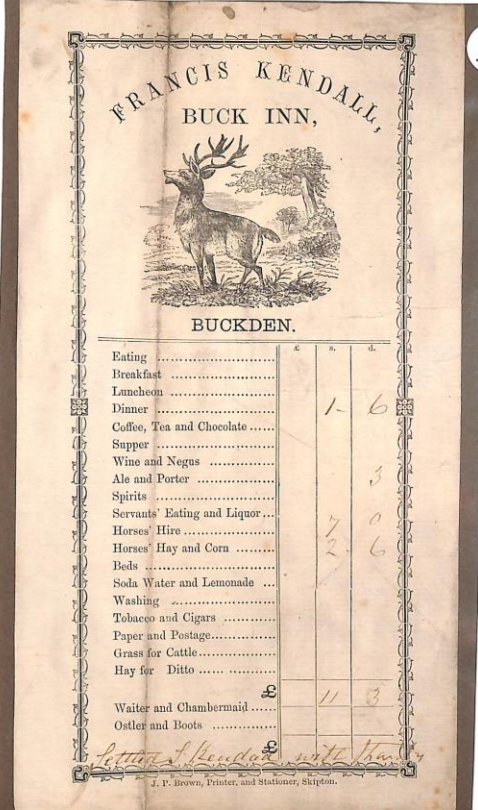 FRANCIS KENDALL,
BUCK INN,
BUCKDEN.
£ s. d.
Eating ........................
Breakfast .....................
Luncheon ......................
Dinner ........................ 1- 6
Coffee, Tea and Chocolate ......
Supper ........................
Wine and Negus ................
Ale and Porter ................ 3
Spirits .......................
Servants' Eating and Liquor...
Horses' Hire .................. 7 0
Horses' Hay and Corn ......... 2- 6
Beds ..........................
Soda Water and Lemonade ...
Washing .......................
Tobacco and Cigars ............
Paper and Postage..............
Grass for Cattle...............
Hay for Ditto .................
£ 11 3
Waiter and Chambermaid ......
Ostler and Boots ..............
£
Settled Kendall with thanks
J. P. Brown, Printer, and Stationer, Skipton.